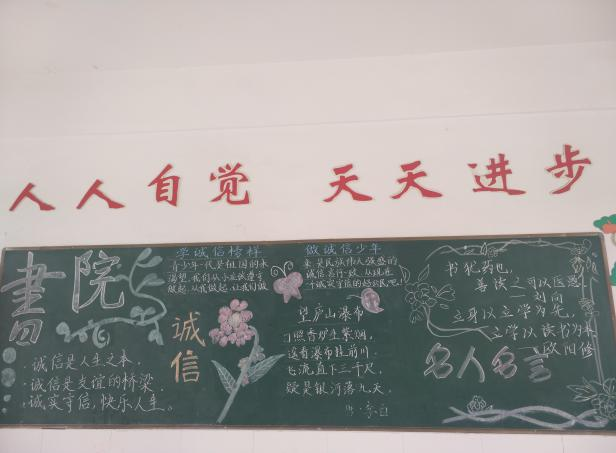 人人自觉 天天进步
書院
·诚信是人生之本,
·诚信是友谊的桥梁,
·诚实守信,快乐人生。
学诚信榜样
青少年一代是祖国的未
渴望,我们从小应该遵守
做起,从我做起,让我们做
诚信
做诚信少年
来,是民族伟大强盛的
诚信,言行一致,从现在
个诚实守信的好公民吧!
望庐山瀑布
日照香炉生紫烟,
遥看瀑布挂前川。
飞流直下三千尺,
疑是银河落九天。
李白
书犹药也,
善读之可以医愚
——刘向
立身以立学为先,
立学以读书为本
——欧阳修
名人名言